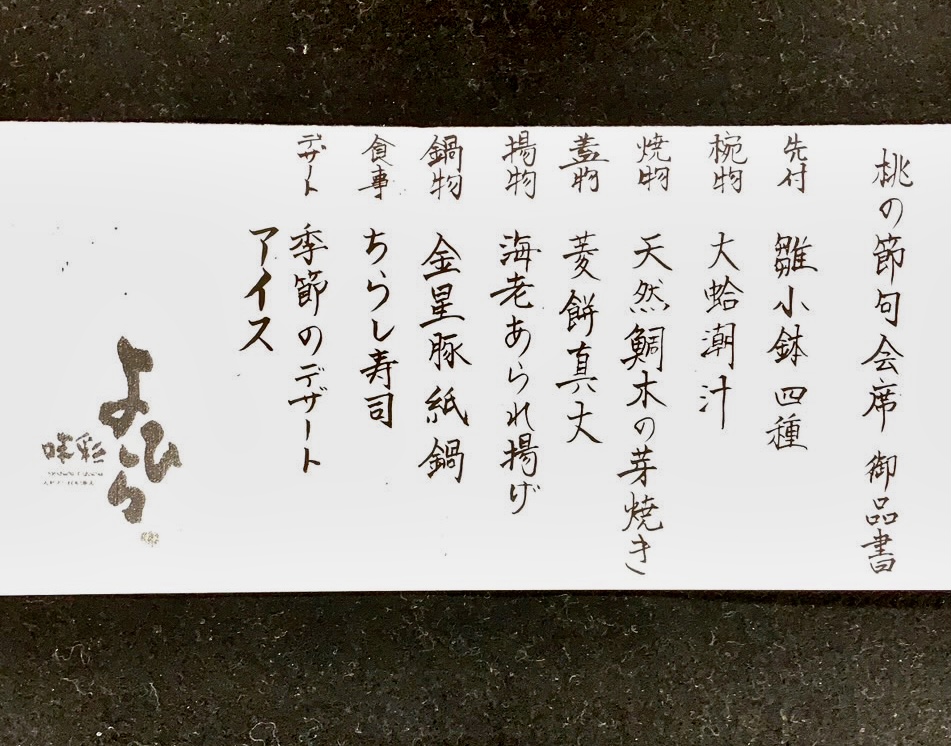 桃の節句会席 御品書
先付 雛小鉢 四種
椀物 大蛤潮汁
焼物 天然鯛木の芽焼き
蓋物 菱餅真丈
揚物 海老あられ揚げ
鍋物 金星豚 紙鍋
食事 ちらし寿司
デザート 季節のデザート
アイス
彩味